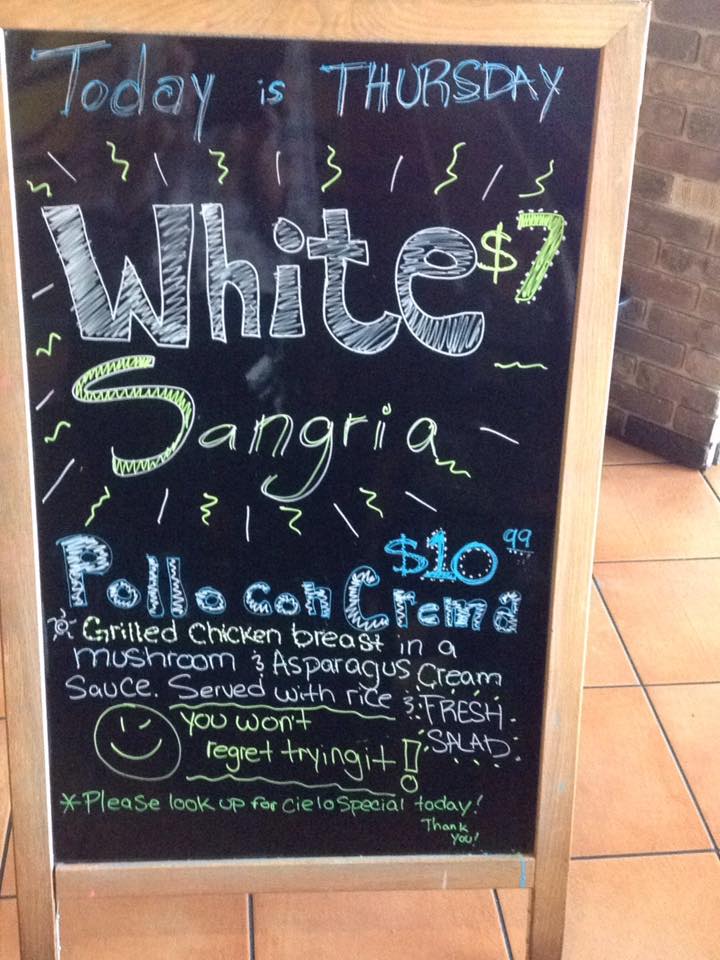 Today is THURSDAY
White $7
Sangria
$10 99
Pollo con Crema
Grilled Chicken breast in a
mushroom & Asparagus Cream
Sauce. Served with rice &
FRESH
SALAD
you won't
regret trying it!
*Please look up for cielo Special today!
Thank
you!